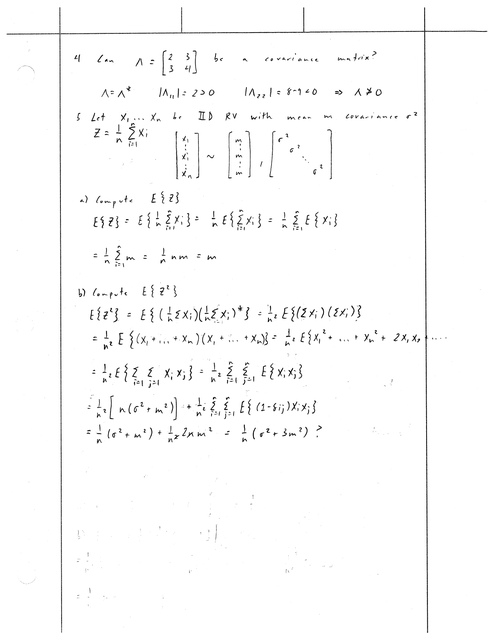 4 Can Λ = [2 3; 3 4] be a covariance matrix?
Λ = Λ* |Λ₁₁| = 2 > 0 |Λ₂₂| = 8-9 < 0 ⇒ Λ ≯ 0
5 Let X₁ ... Xₙ be IID RV with mean m covariance σ²
Z = 1/n Σᵢ₌₁ⁿ Xᵢ
[X₁ ⋮ Xᵢ ⋮ Xₙ] ~ [m ⋮ m ⋮ m], [σ² σ² ⋱ σ²]
a) Compute E{Z}
E{Z} = E{1/n Σᵢ₌₁ⁿ Xᵢ} = 1/n E{Σᵢ₌₁ⁿ Xᵢ} = 1/n Σᵢ₌₁ⁿ E{Xᵢ}
= 1/n Σᵢ₌₁ⁿ m = 1/n nm = m
b) Compute E{Z²}
E{Z²} = E{(1/n ΣXᵢ)(1/n ΣXᵢ)*} = 1/n² E{(ΣXᵢ)(ΣXᵢ)}
= 1/n² E{(X₁ + ... + Xₙ)(X₁ + ... + Xₙ)} = 1/n² E{X₁² + ... + Xₙ² + 2X₁X₂ + ...
= 1/n² E{Σᵢ₌₁ Σⱼ₌₁ XᵢXⱼ} = 1/n² Σᵢ₌₁ⁿ Σⱼ₌₁ⁿ E{XᵢXⱼ}
= 1/n² [n(σ² + m²)] + 1/n² Σᵢ₌₁ⁿ Σⱼ₌₁ⁿ E{(1-δᵢⱼ)XᵢXⱼ}
= 1/n (σ² + m²) + 1/n² 2nm² = 1/n (σ² + 3m²) ?